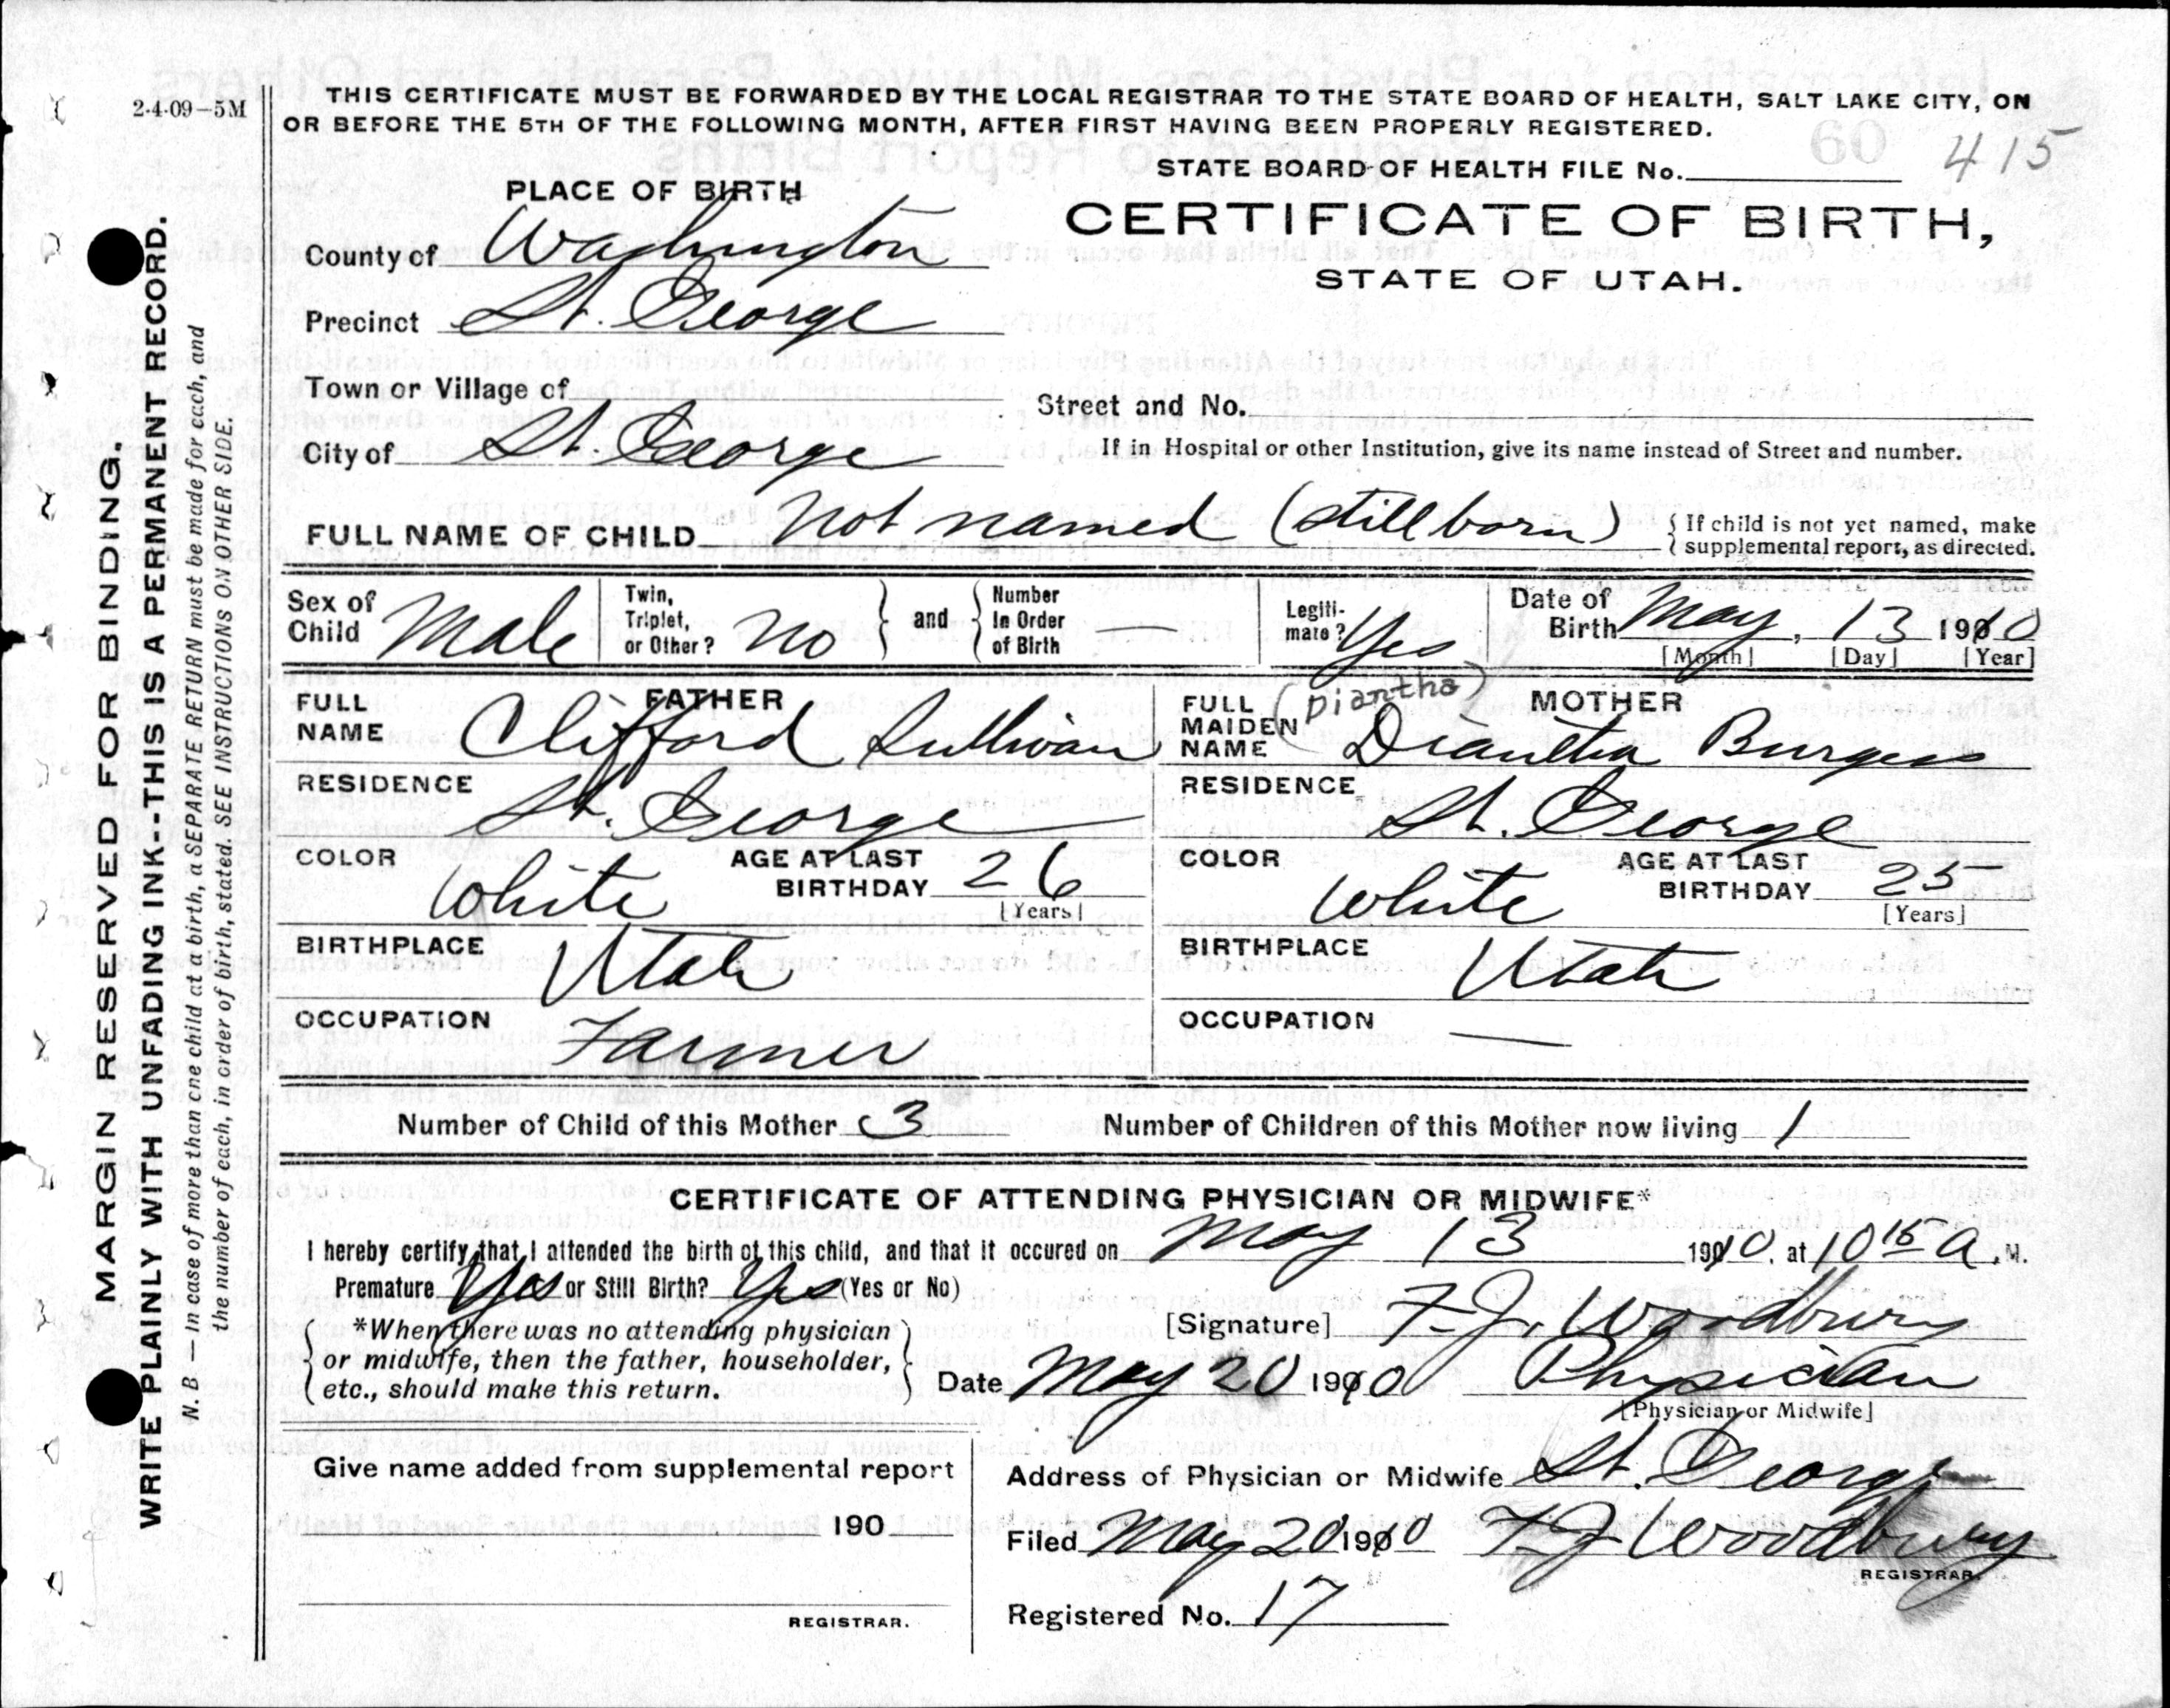 2-4-09—5M
THIS CERTIFICATE MUST BE FORWARDED BY THE LOCAL REGISTRAR TO THE STATE BOARD OF HEALTH, SALT LAKE CITY, ON
OR BEFORE THE 5TH OF THE FOLLOWING MONTH, AFTER FIRST HAVING BEEN PROPERLY REGISTERED.
STATE BOARD OF HEALTH FILE No. 60 415
CERTIFICATE OF BIRTH,
STATE OF UTAH.
PLACE OF BIRTH
County of Washington
Precinct St. George
Town or Village of
Street and No.
City of St George
If in Hospital or other Institution, give its name instead of Street and number.
FULL NAME OF CHILD Not named (stillborn) { If child is not yet named, make
supplemental report, as directed.
Sex of Child Male
Twin, Triplet, or Other? No } and { Number In Order of Birth —
Legiti-mate? Yes
Date of Birth May, 13 1910
[Month] [Day] [Year]
FATHER
FULL NAME Clifford Sullivan
RESIDENCE St. George
COLOR White AGE AT LAST BIRTHDAY 26
[Years]
BIRTHPLACE Utah
OCCUPATION Farmer
MOTHER
(Diantha)
FULL MAIDEN NAME Diantha Burgess
RESIDENCE St. George
COLOR White AGE AT LAST BIRTHDAY 25
[Years]
BIRTHPLACE Utah
OCCUPATION —
Number of Child of this Mother 3 Number of Children of this Mother now living 1
CERTIFICATE OF ATTENDING PHYSICIAN OR MIDWIFE*
I hereby certify that I attended the birth of this child, and that it occured on May 13 1910. at 10 15 A. M.
Premature Yes or Still Birth? Yes (Yes or No)
{ *When there was no attending physician
or midwife, then the father, householder,
etc., should make this return. }
[Signature] F. J. Woodbury
Date May 20 1910 Physician
[Physician or Midwife]
Give name added from supplemental report
190
REGISTRAR.
Address of Physician or Midwife St. George
Filed May 20 1910 F J Woodbury
REGISTRAR.
Registered No. 17
MARGIN RESERVED FOR BINDING.
WRITE PLAINLY WITH UNFADING INK--THIS IS A PERMANENT RECORD.
N. B.—In case of more than one child at a birth, a SEPARATE RETURN must be made for each, and
the number of each, in order of birth, stated. SEE INSTRUCTIONS ON OTHER SIDE.